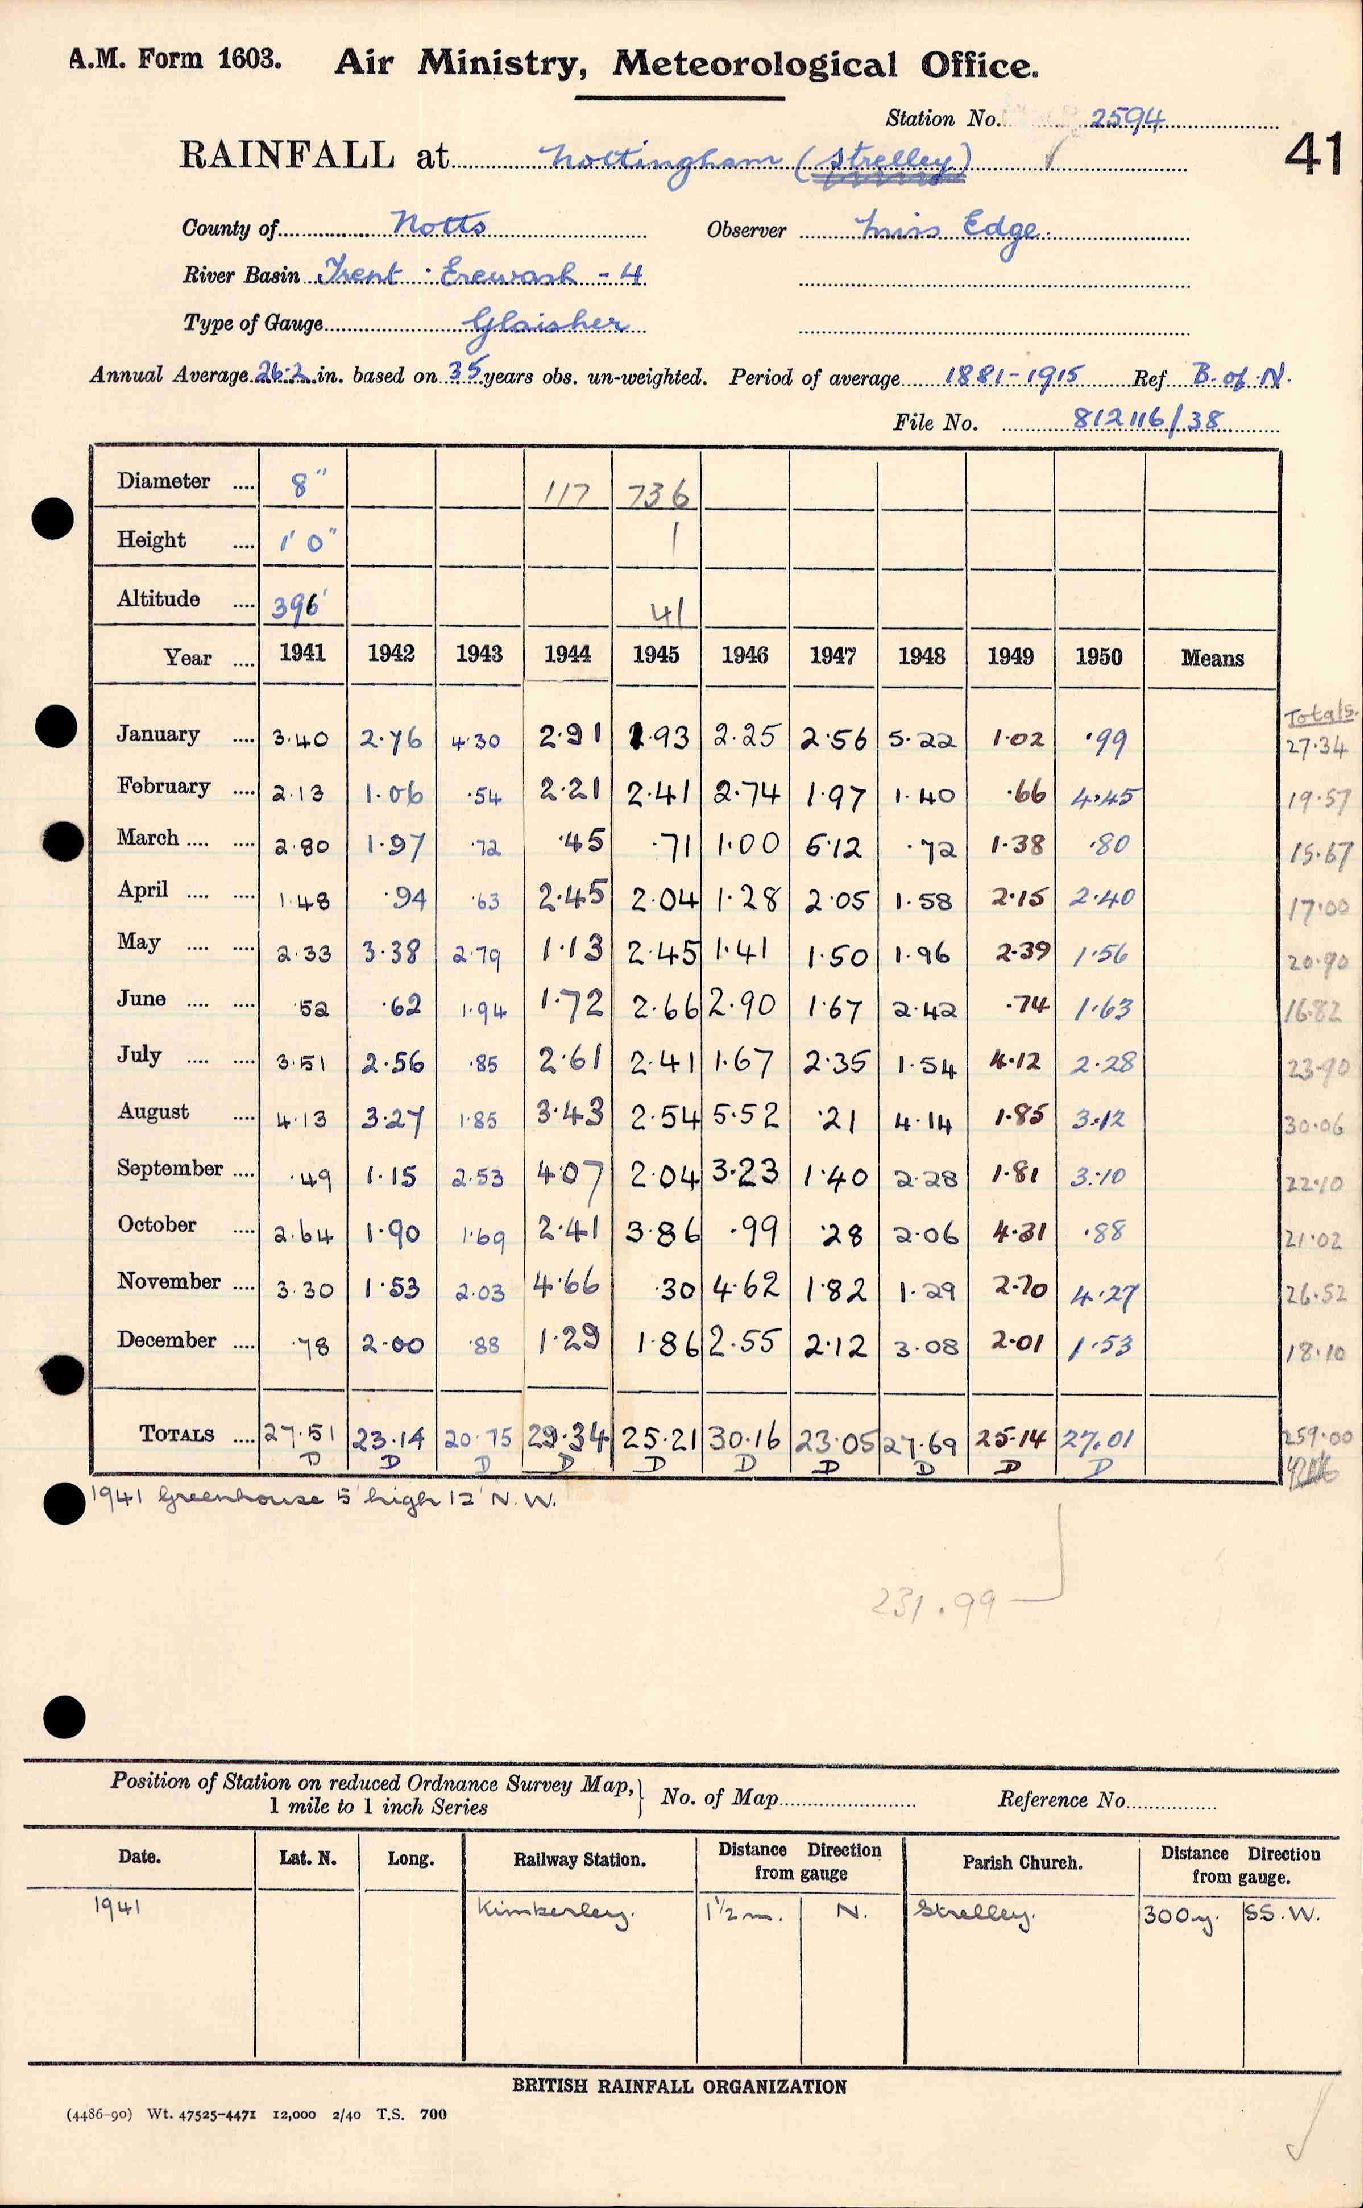 A.M. Form 1603. Air Ministry, Meteorological Office.
Station No. 2594
RAINFALL at Nottingham (Strelley) 41
County of Notts Observer Miss Edge.
River Basin Trent : Erewash - 4
Type of Gauge Glaisher
Annual Average 26.2 in. based on 35 years obs. un-weighted. Period of average 1881-1915 Ref B. of N.
File No. 812116/38
Diameter .... 8" 117 736
Height .... 1' 0" 1
Altitude .... 396' 41
Year .... 1941 1942 1943 1944 1945 1946 1947 1948 1949 1950 Means
Totals.
January .... 3.40 2.76 4.30 2.91 1.93 2.25 2.56 5.22 1.02 .99 27.34
February .... 2.13 1.06 .54 2.21 2.41 2.74 1.97 1.40 .66 4.45 19.57
March .... .... 2.80 1.97 .72 .45 .71 1.00 5.12 .72 1.38 .80 15.67
April .... .... 1.48 .94 .63 2.45 2.04 1.28 2.05 1.58 2.15 2.40 17.00
May .... .... 2.33 3.38 2.79 1.13 2.45 1.41 1.50 1.96 2.39 1.56 20.90
June .... .... .52 .62 1.94 1.72 2.66 2.90 1.67 2.42 .74 1.63 16.82
July .... .... 3.51 2.56 .85 2.61 2.41 1.67 2.35 1.54 4.12 2.28 23.90
August .... 4.13 3.27 1.85 3.43 2.54 5.52 .21 4.14 1.85 3.12 30.06
September .... .49 1.15 2.53 4.07 2.04 3.23 1.40 2.28 1.81 3.10 22.10
October .... 2.64 1.90 1.69 2.41 3.86 .99 .28 2.06 4.31 .88 21.02
November .... 3.30 1.53 2.03 4.66 .30 4.62 1.82 1.29 2.70 4.27 26.52
December .... .78 2.00 .88 1.29 1.86 2.55 2.12 3.08 2.01 1.53 18.10
TOTALS .... 27.51 23.14 20.75 29.34 25.21 30.16 23.05 27.69 25.14 27.01 259.00
D D D D D D D D D D
1941 Greenhouse 5' high 12' N.W.
231.99
Position of Station on reduced Ordnance Survey Map, } No. of Map Reference No.
1 mile to 1 inch Series
Date. Lat. N. Long. Railway Station. Distance Direction from gauge Parish Church. Distance Direction from gauge.
1941 Kimberley. 1½ m. N. Strelley. 300y. SS.W.
BRITISH RAINFALL ORGANIZATION
(4486-90) Wt. 47525-4471 12,000 2/40 T.S. 700